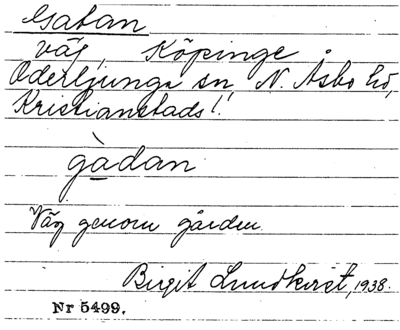 Gatan
väg, Köpinge
Oderljunga sn, N. Åsbo hd,
Kristianstads l.
gàdan
Väg genom gården.
Birgit Lundkvist, 1938.
Nr 5499.